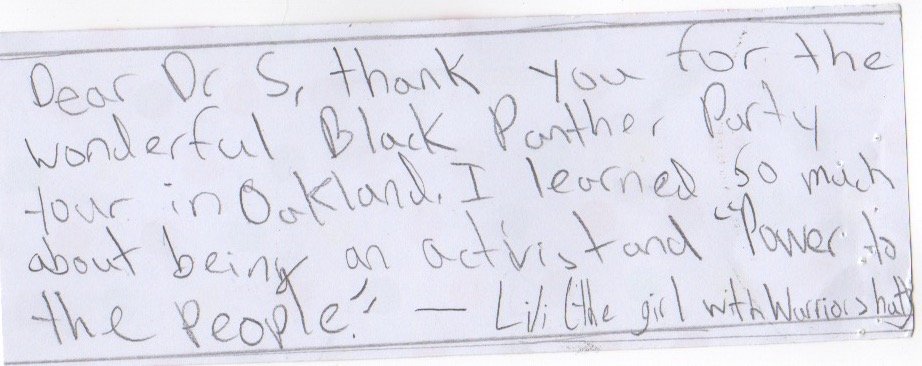 Dear Dr S, thank you for the
wonderful Black Panther Party
tour in Oakland. I learned so much
about being an activist and "Power to
the People!" — Lili (the girl with Warriors hat)